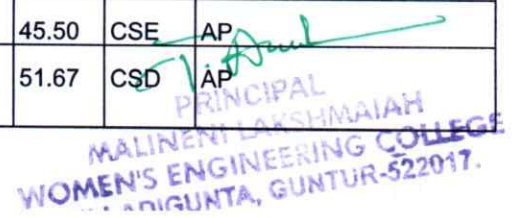 45.50 CSE AP
51.67 CSD AP
PRINCIPAL
MALINENI LAKSHMAIAH
WOMEN'S ENGINEERING COLLEGE
GUNTUR-522017.